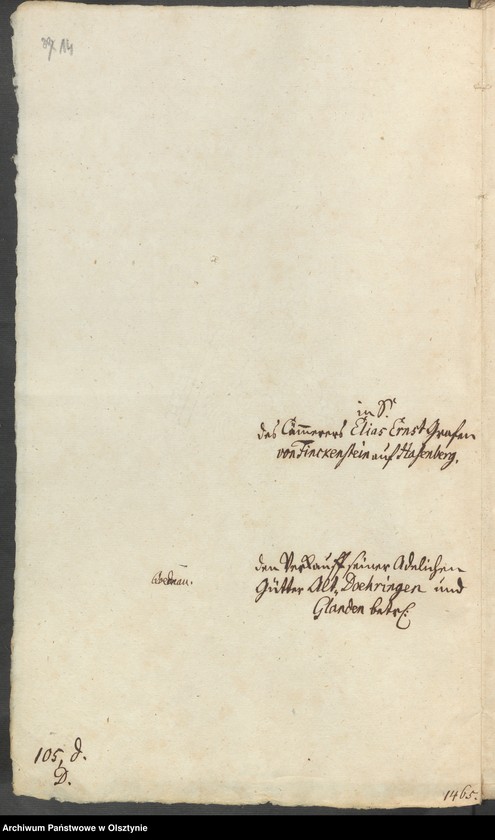 14
in S.
des Cammerers Elias Ernst Grafen
von Finckenstein auf Hasenberg.
den Verkauff seiner Adelichen
Gütter Alt, Doehringen und
Glanden betr:
105, d.
D.
1465.
Archiwum Państwowe w Olsztynie